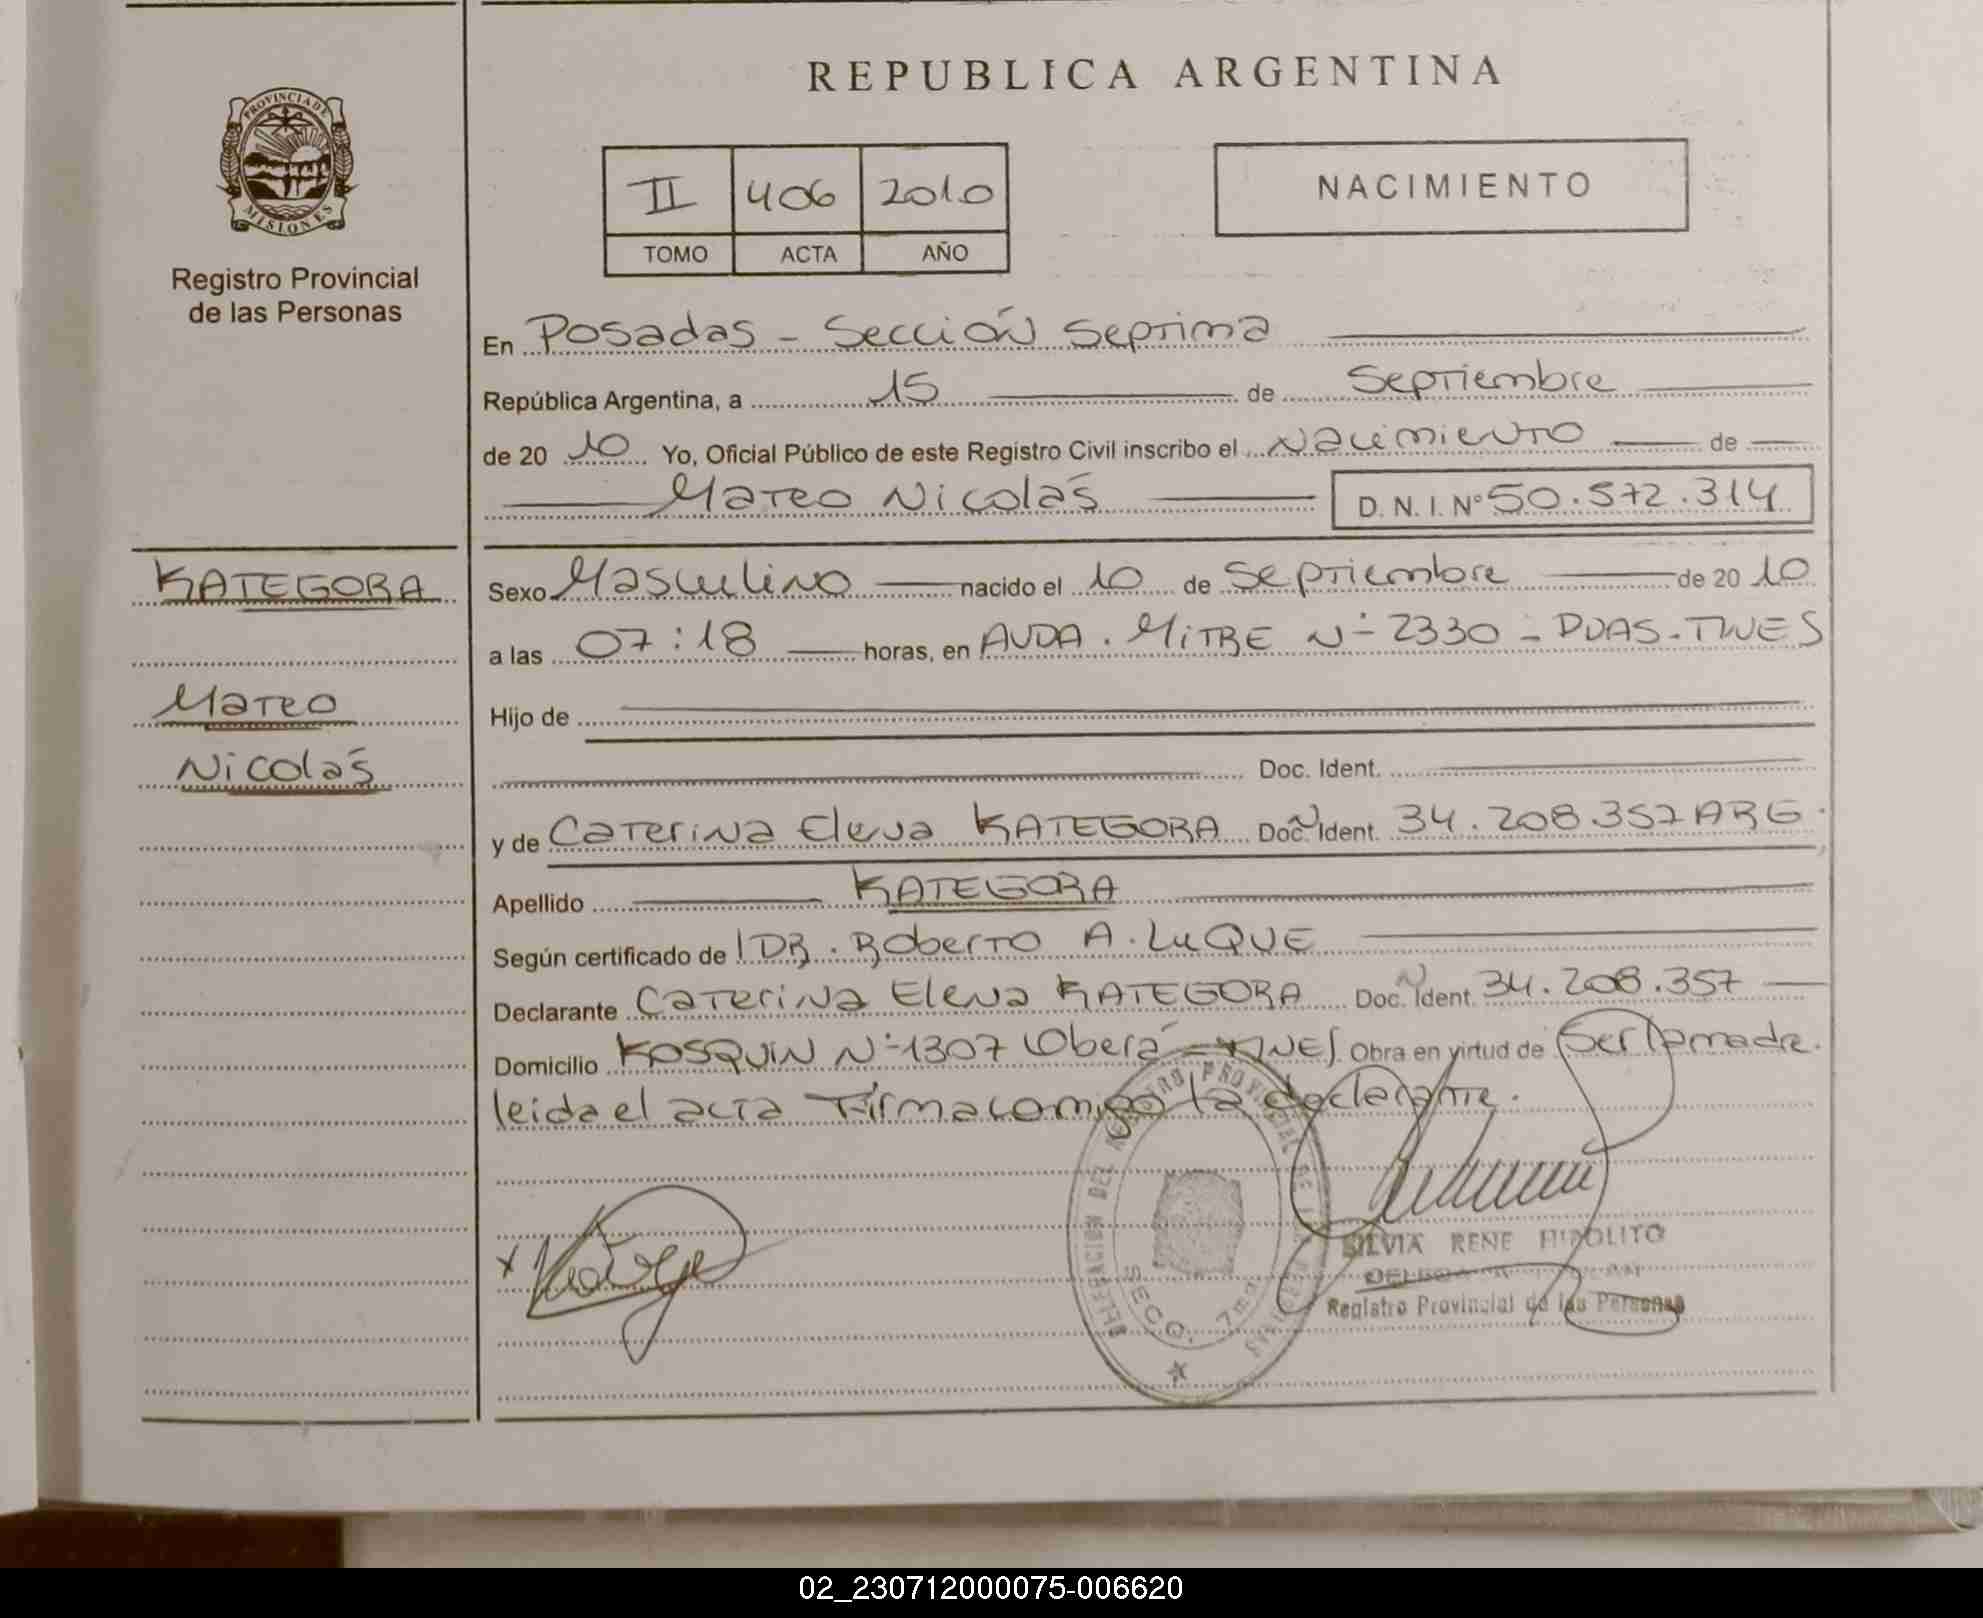 REPUBLICA ARGENTINA
PROVINCIA DE
MISIONES
Registro Provincial
de las Personas
II 406 2010
TOMO ACTA AÑO
NACIMIENTO
En Posadas - Sección Septima
República Argentina, a 15 de Septiembre
de 20 10 Yo, Oficial Público de este Registro Civil inscribo el Nacimiento de
Mateo Nicolás D.N.I. Nº 50.572.314
KATEGORA
Mateo
Nicolás
Sexo Masculino nacido el 10 de Septiembre de 20 10
a las 07:18 horas, en AVDA. MiTRE N° 2330 - PDAS-MNES
Hijo de
Doc. Ident.
y de Caterina Elena KATEGORA Doc. Ident. 34.208.357 ARG.
Apellido KATEGORA
Según certificado de DR. Roberto A. LuQUE
Declarante Caterina Elena KATEGORA Doc. Ident. 34.208.357
Domicilio KOSQUIN N° 1307 Oberá - MNES. Obra en virtud de Ser la madre.
leida el acta Firma comigo la declarante.
x
DELEGACION DEL REGISTRO PROVINCIAL DE LAS PERSONAS
SECC. 7ma
SILVIA RENE HIPOLITO
Registro Provincial de las Personas
02_230712000075-006620